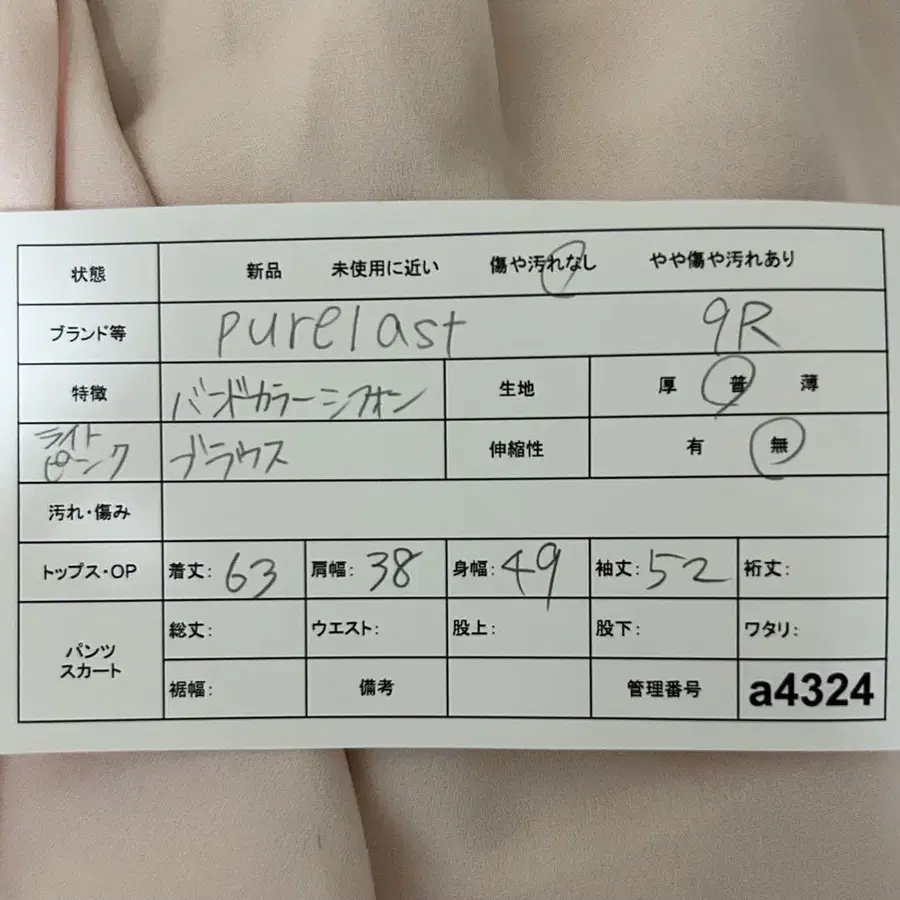 状態 新品 未使用に近い 傷や汚れなし やや傷や汚れあり
ブランド等 purelast 9R
特徴 バンドカラーシフォン 生地 厚 普 薄
ライトピンク ブラウス 伸縮性 有 無
汚れ・傷み
トップス・OP 着丈: 63 肩幅: 38 身幅: 49 袖丈: 52 裄丈:
パンツ スカート 総丈: ウエスト: 股上: 股下: ワタリ:
裾幅: 備考 管理番号 a4324